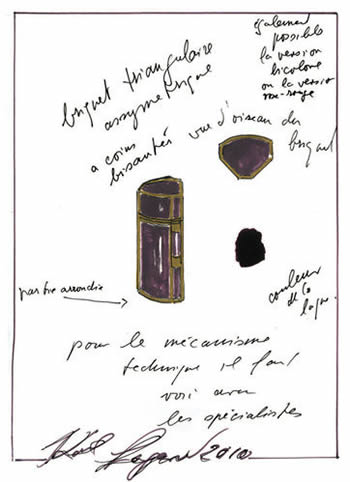 également
possible
la version
bicolore
ou la version
briquet triangulaire
assymetrique
a coins
bisautés
vue d'oiseau du
briquet
partie arrondie
couleur
de la
laque
pour le mécanisme
technique il faut
voir avec
les spécialistes
Karl Lagerfeld 2010